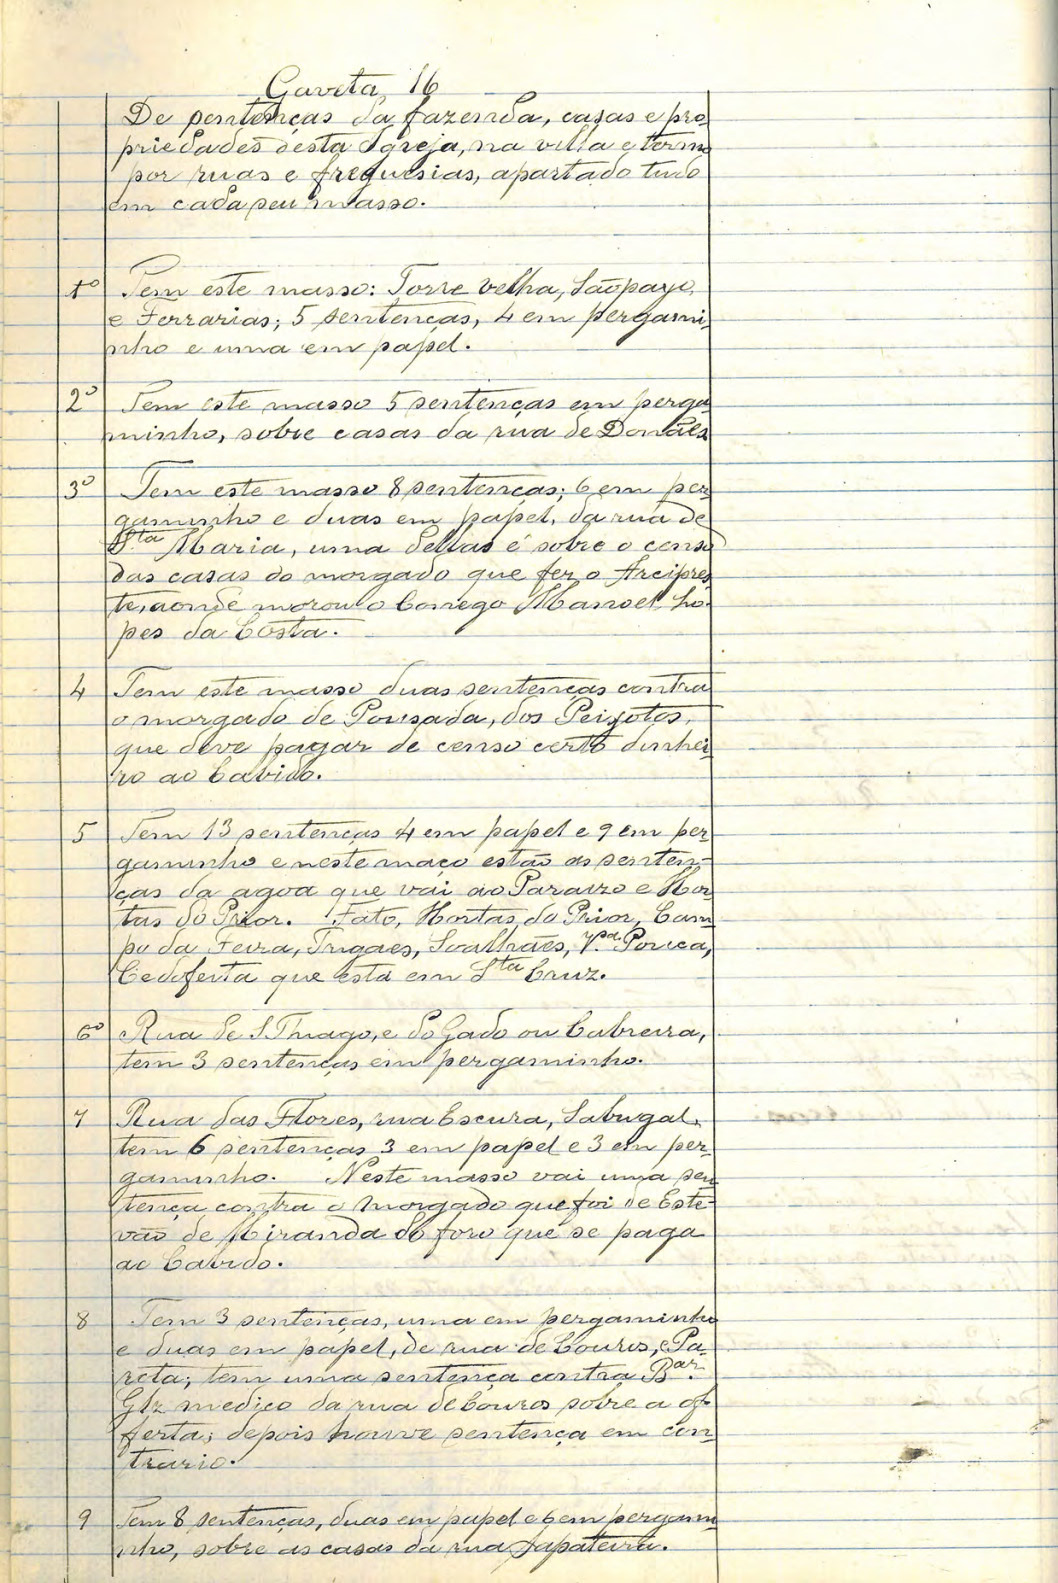 Gaveta, 16
De sentenças da fazenda, casas e pro-
priedades desta Igreja, na villa e termo
por ruas e freguesias, apartado tudo
em cada seu masso.
1º Tem este masso: Torre velha, Sãopayo,
e Ferrarias; 5 sentenças, 4 em pergami-
nho e uma em papel.
2º Tem este masso 5 sentenças em perga-
minho, sobre casas da rua de Donães
3º Tem este masso 8 sentenças; 6 em per-
gaminho e duas em papel, da rua de
Sta Maria, uma dellas é sobre o censo
das casas do morgado que fez o Arcipres-
te, aonde morou o Conego Manoel Lo-
pes da Costa.
4 Tem este masso duas sentenças contra
o morgado de Pousada, dos Peixotos,
que deve pagar de censo certo dinhei-
ro ao Cabido.
5 Tem 13 sentenças 4 em papel e 9 em per-
gaminho e neste maço estão as senten-
ças da agoa que vai ao Paraizo e Hor-
tas do Prior. Fato, Hortas do Prior, Cam-
po da Feira, Trigaes, Soalhães, Vª Pouca,
Cedofeita que está em Sta Cruz.
6º Rua de S. Thiago, e do Gado ou Cabreira,
tem 3 sentenças em pergaminho.
7 Rua das Flores, rua Escura, Sabugal,
tem 6 sentenças 3 em papel e 3 em per-
gaminho. Neste masso vai uma sen-
tença contra o Morgado que foi de Este-
vão de Miranda do foro que se paga
ao Cabido.
8 Tem 3 sentenças, uma em pergaminho
e duas em papel, de rua de Couros, e Ca-
reta; tem uma sentença contra Bar.
Glz medico da rua de Couros sobre a of-
ferta; depois houve sentença em con-
trario.
9 Tem 8 sentenças, duas em papel e 6 em pergami-
nho, sobre as casas da rua Sapateira.